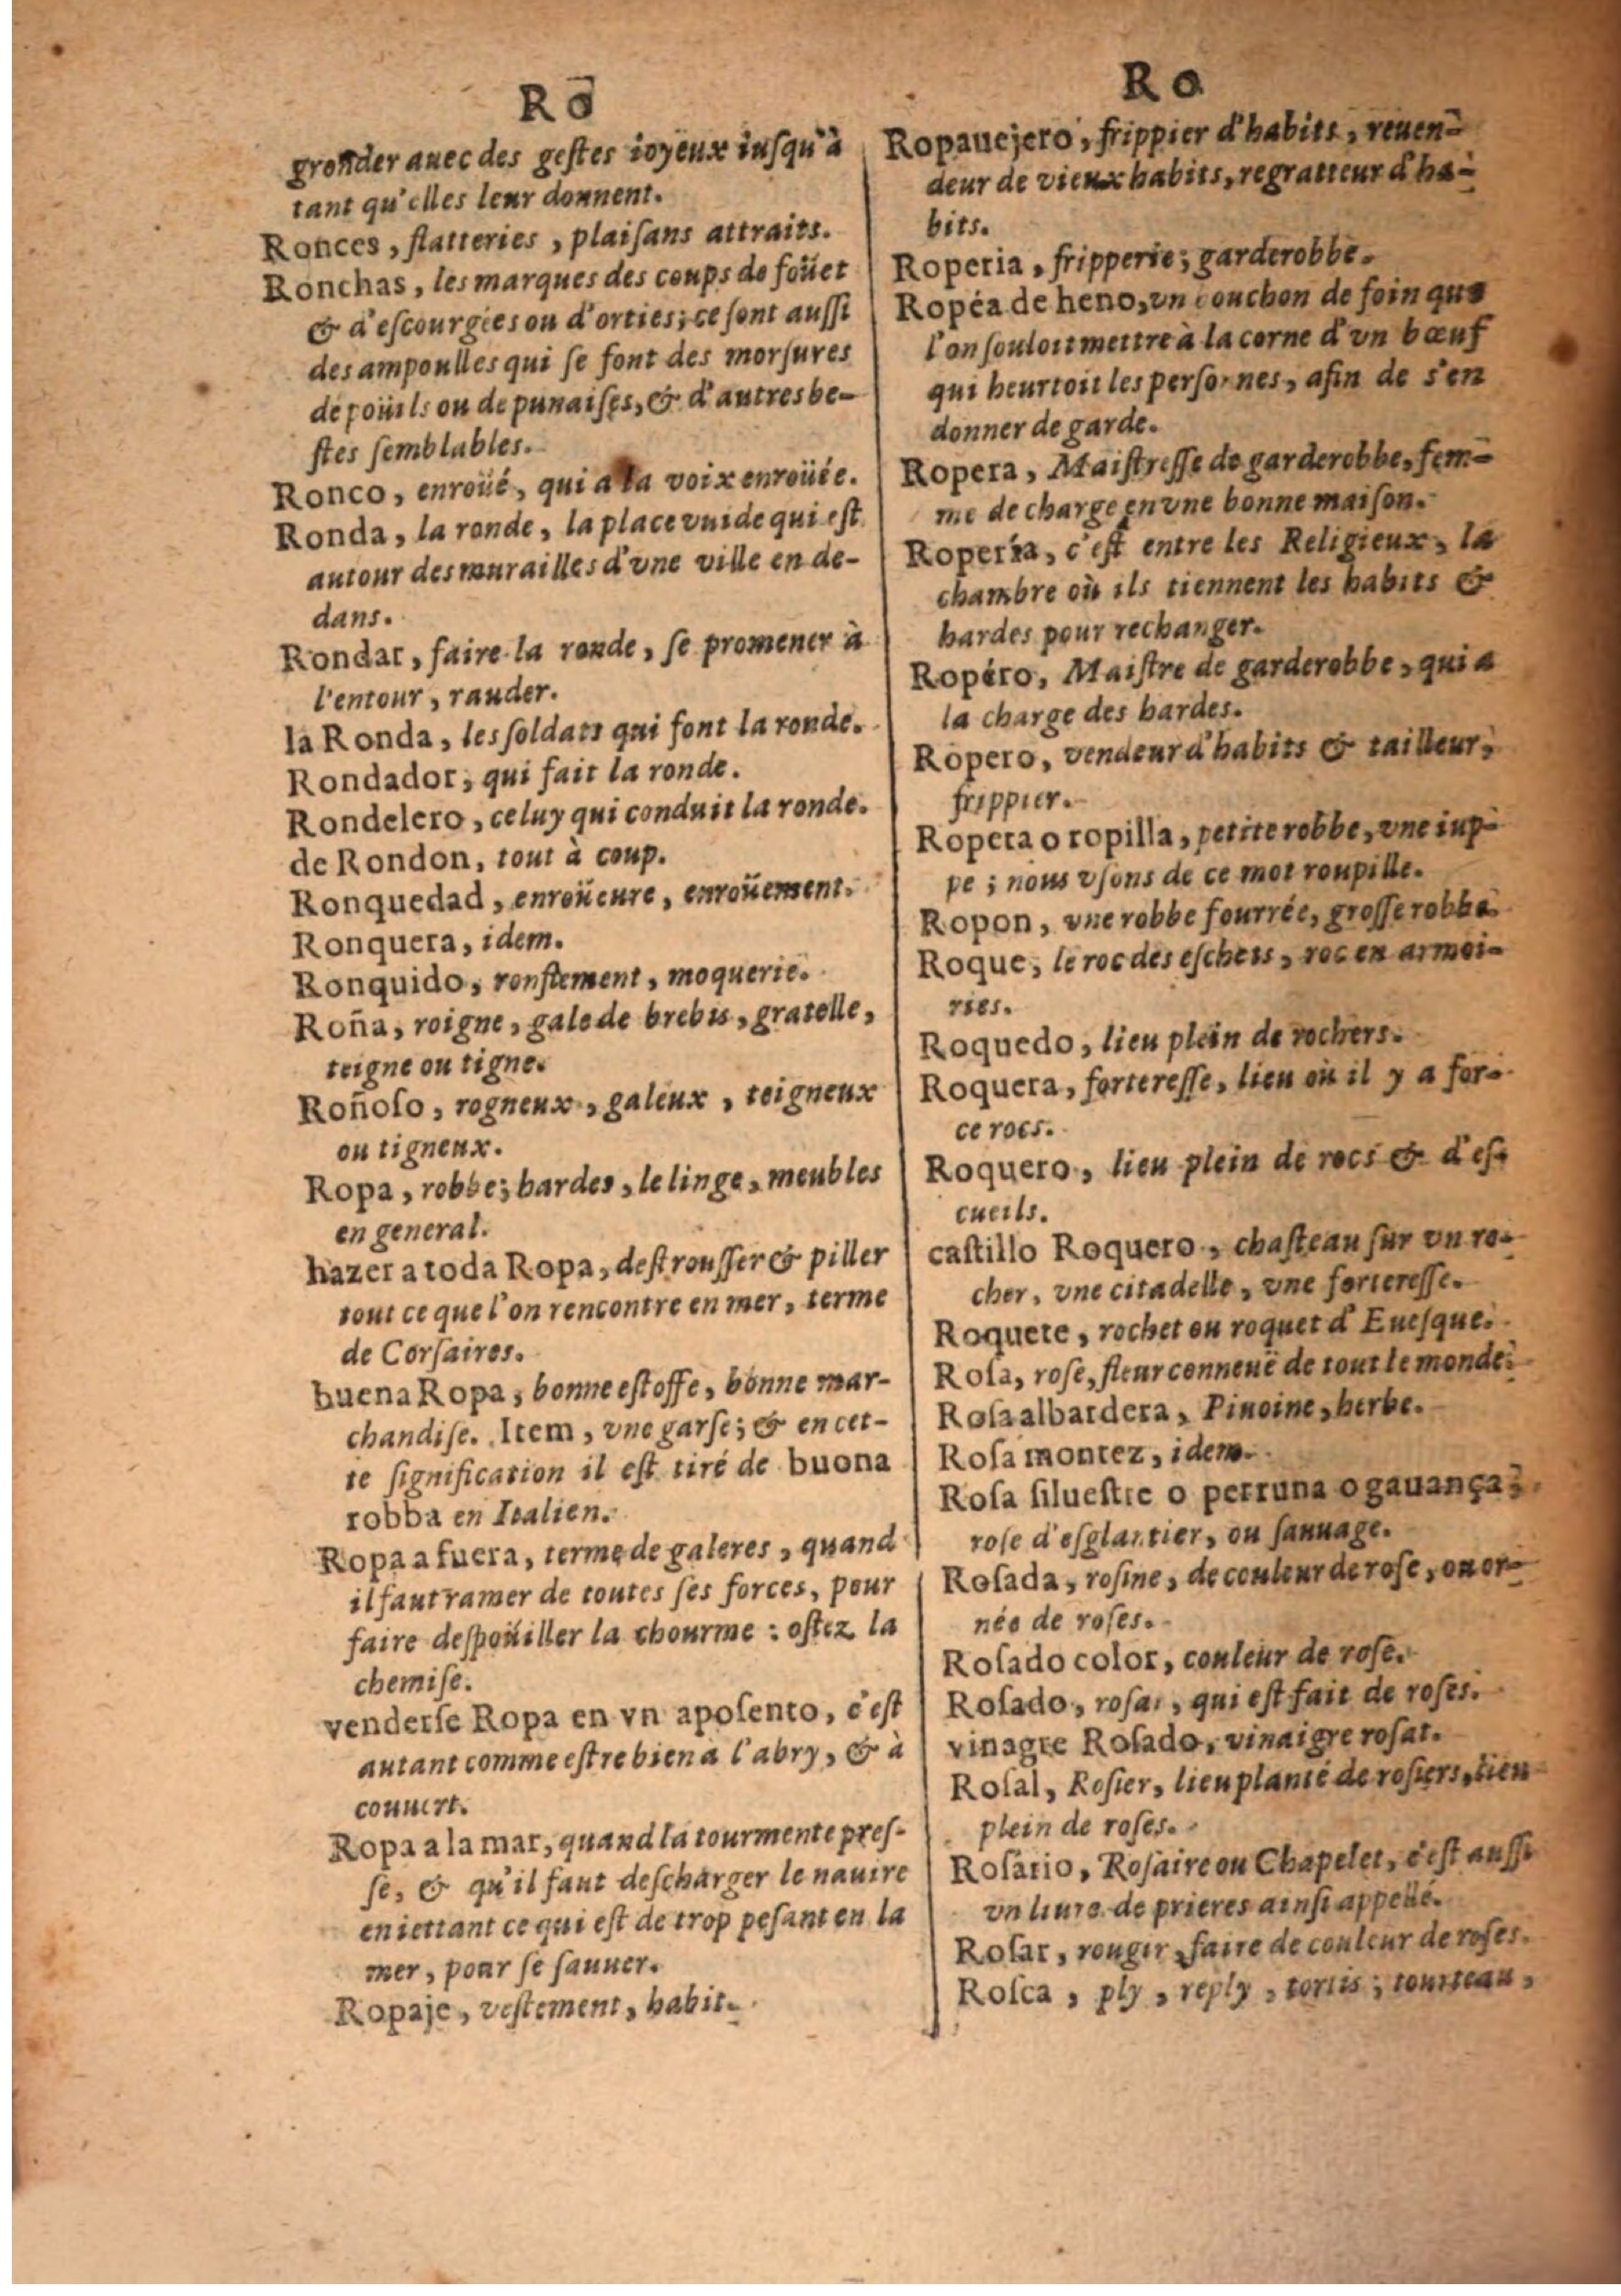 Ro
gronder auec des geſtes ioyeux iuſqu'à
tant qu'elles leur donnent.
Ronces, flatteries, plaiſans attraits.
Ronchas, les marques des coups de foüet
& d'eſcourgées ou d'orties; ce ſont auſſi
des ampoulles qui ſe font des morſures
de poüils ou de punaiſes, & d'autres be-
ſtes ſemblables.
Ronco, enroüé, qui a la voix enroüée.
Ronda, la ronde, la place vuide qui eſt
autour des murailles d'vne ville en de-
dans.
Rondar, faire la ronde, ſe promener à
l'entour, rauder.
la Ronda, les ſoldats qui font la ronde.
Rondador, qui fait la ronde.
Rondelero, celuy qui conduit la ronde.
de Rondon, tout à coup.
Ronquedad, enroüeure, enroüement.
Ronquera, idem.
Ronquido, ronflement, moquerie.
Roña, roigne, gale de brebis, gratelle,
teigne ou tigne.
Roñoſo, rogneux, galeux, teigneux
ou tigneux.
Ropa, robbe; hardes, le linge, meubles
en general.
hazer a toda Ropa, deſtrouſſer & piller
tout ce que l'on rencontre en mer, terme
de Corſaires.
buena Ropa, bonne eſtoffe, bonne mar-
chandiſe. Item, vne garſe; & en cet-
te ſignification il eſt tiré de buona
robba en Italien.
Ropa a fuera, terme de galeres, quand
il faut ramer de toutes ſes forces, pour
faire deſpoüiller la chourme : oſtez la
chemiſe.
venderſe Ropa en vn apoſento, c'eſt
autant comme eſtre bien à l'abry, & à
couuert.
Ropa a la mar, quand la tourmente preſ-
ſe, & qu'il faut deſcharger le nauire
en iettant ce qui eſt de trop peſant en la
mer, pour ſe ſauuer.
Ropaje, veſtement, habit.
Ro
Ropauejero, frippier d'habits, reuen-
deur de vieux habits, regratteur d'ha-
bits.
Roperia, fripperie; garderobbe.
Ropéa de heno, vn bouchon de foin que
l'on ſouloit mettre à la corne d'vn bœuf
qui heurtoit les perſonnes, afin de s'en
donner de garde.
Ropera, Maiſtreſſe de garderobbe, fem-
me de charge en vne bonne maiſon.
Ropería, c'eſt entre les Religieux, la
chambre où ils tiennent les habits &
hardes pour rechanger.
Ropéro, Maiſtre de garderobbe, qui a
la charge des hardes.
Ropero, vendeur d'habits & tailleur,
frippier.
Ropeta o ropilla, petite robbe, vne iup-
pe; nous vſons de ce mot roupille.
Ropon, vne robbe fourrée, groſſe robbe.
Roque, le roc des eſchets, roc en armoi-
ries.
Roquedo, lieu plein de rochers.
Roquera, fortereſſe, lieu où il y a for-
ce rocs.
Roquero, lieu plein de rocs & d'eſ-
cueils.
caſtillo Roquero, chaſteau ſur vn ro-
cher, vne citadelle, vne fortereſſe.
Roquete, rochet ou roquet d'Eueſque.
Roſa, roſe, fleur conneuë de tout le monde.
Roſa albardera, Pinoine, herbe.
Roſa montez, idem.
Roſa ſilueſtre o perruna o gauança,
roſe d'eſglantier, ou ſauuage.
Roſada, roſine, de couleur de roſe, ou or-
née de roſes.
Roſado color, couleur de roſe.
Roſado, roſat, qui eſt fait de roſes.
vinagre Roſado, vinaigre roſat.
Roſal, Roſier, lieu planté de roſiers, lieu
plein de roſes.
Roſario, Roſaire ou Chapelet, c'eſt auſſi
vn liure de prieres ainſi appellé.
Roſar, rougir, faire de couleur de roſes.
Roſca, ply, reply, tortis; tourteau,